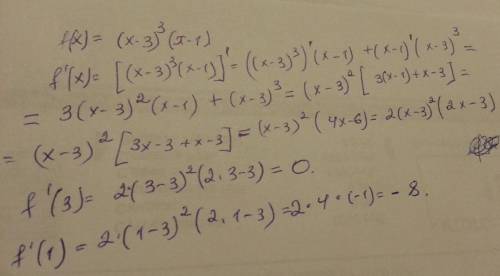 f(x) = (x-3)³(x-1)
f'(x) = [(x-3)³(x-1)]' = ((x-3)³)'(x-1) + (x-1)'(x-3)³ =
= 3(x-3)²(x-1) + (x-3)³ = (x-3)²[3(x-1)+x-3] =
= (x-3)²[3x-3+x-3] = (x-3)²(4x-6) = 2(x-3)²(2x-3)
f'(3) = 2·(3-3)²(2·3-3) = 0.
f'(1) = 2·(1-3)²(2·1-3) = 2·4·(-1) = -8.